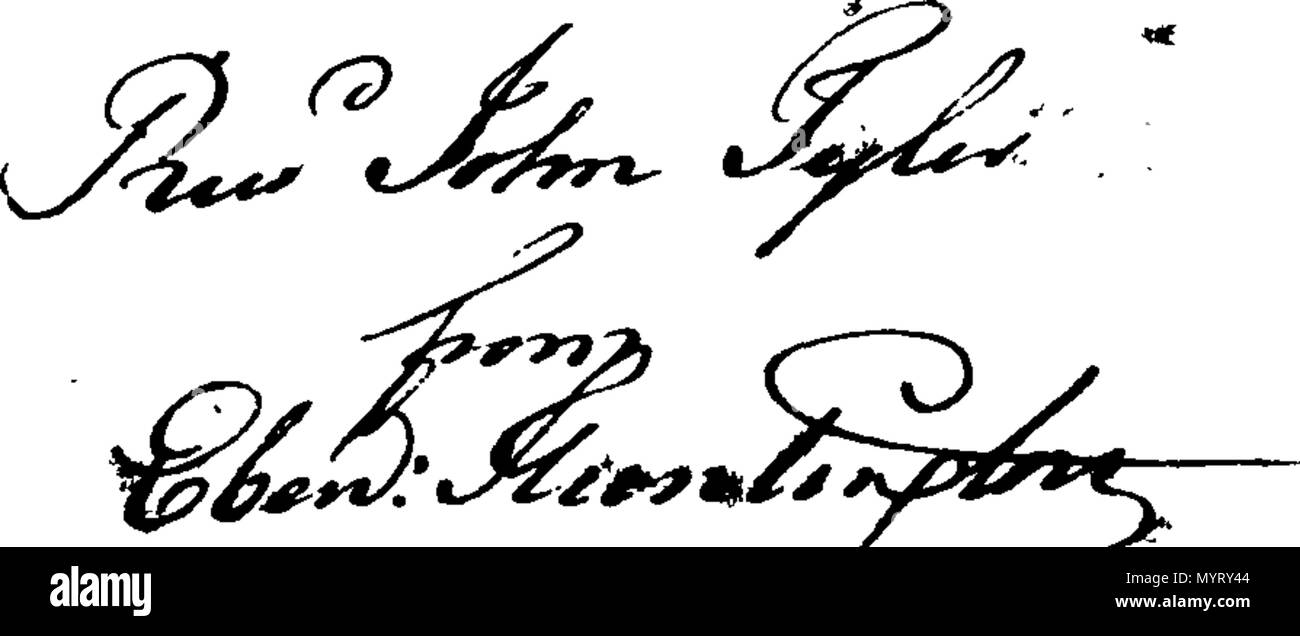 Rev John Tyler
from
Eben: Huntington
alamy
Image ID: MYRY44
www.alamy.com